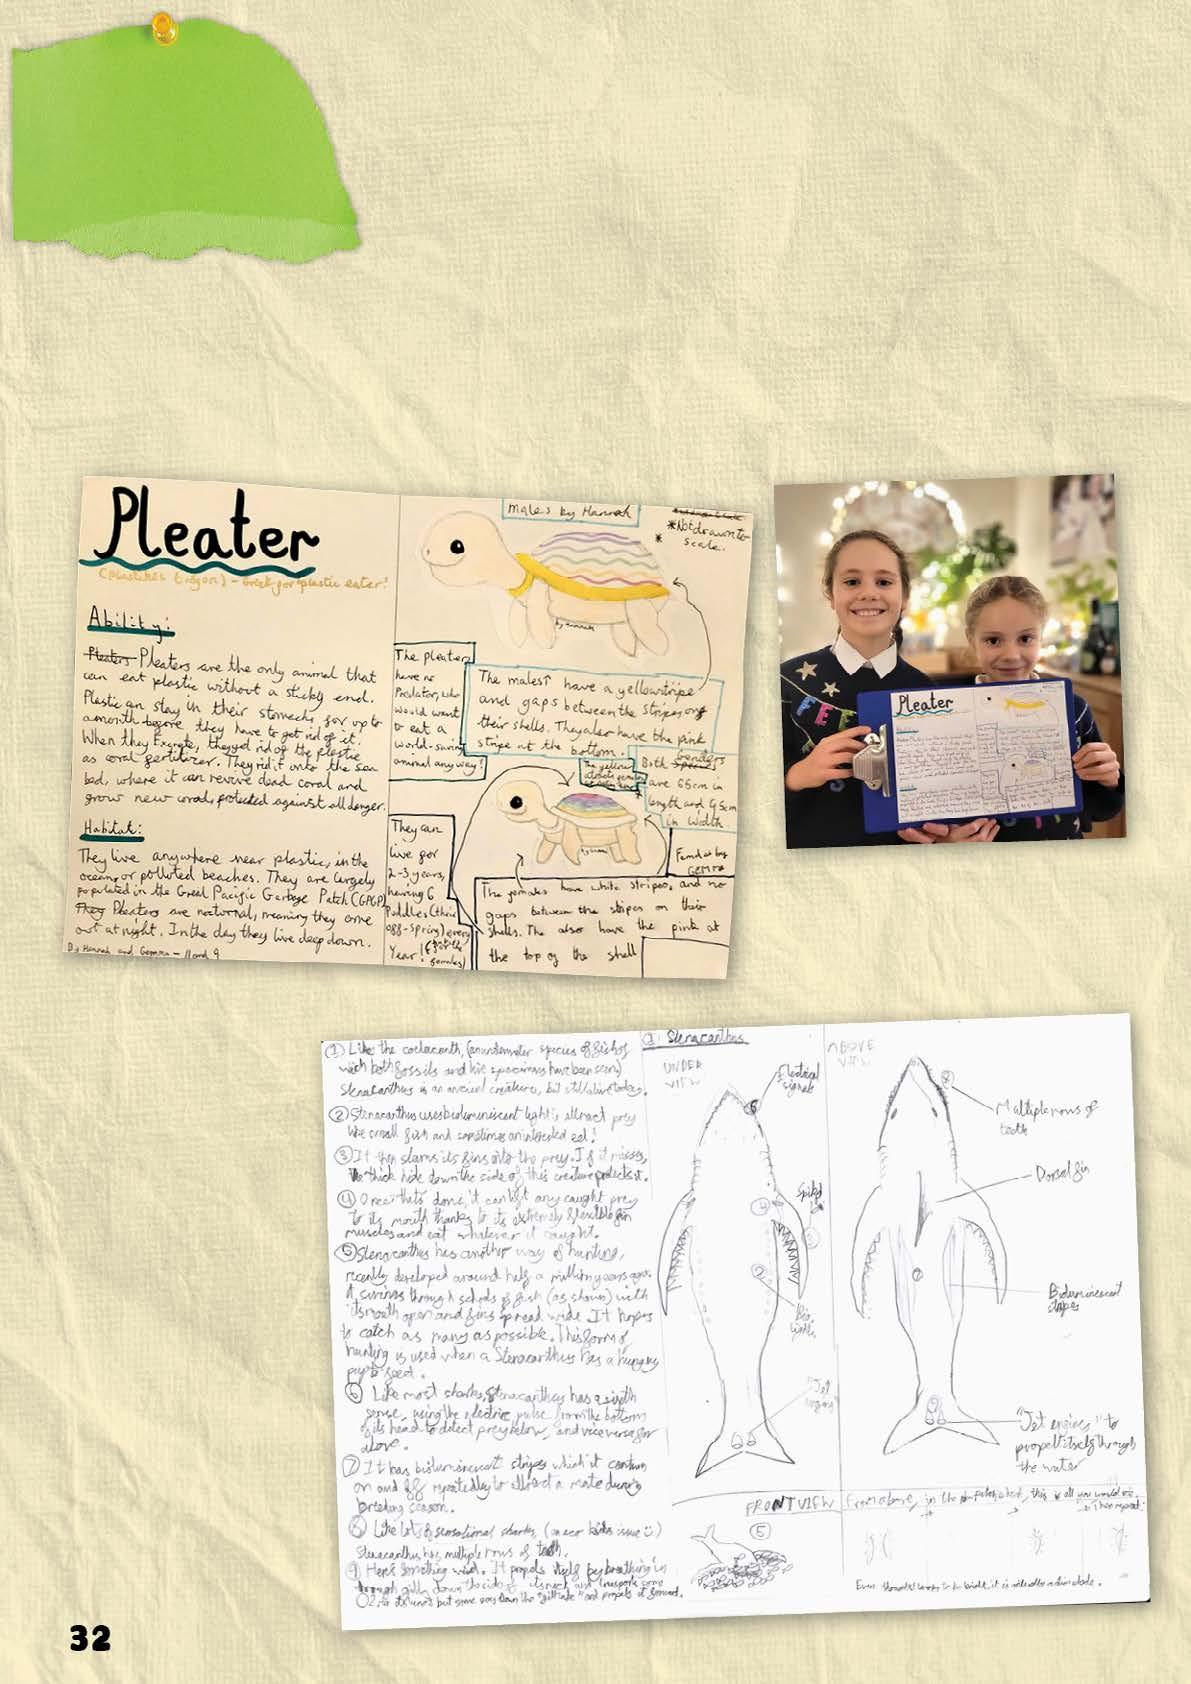 Pleater
(Plastikós trógon) - Greek for plastic eater!
Ability:
Pleaters are the only animal that
can eat plastic without a sticky end.
Plastic can stay in their stomachs for up to
a month before they have to get rid of it.
When they excrete, they get rid of the plastic
as coral fertilizer. They rid it onto the sea
bed, where it can revive dead coral and
grow new coral, protected against all danger.
Habitat:
They live anywhere near plastic, in the
ocean, or polluted beaches. They are largely
populated in the Great Pacific Garbage Patch (GPGP)
They Pleaters are nocturnal, meaning they come
out at night. In the day they live deep down.
By Hannah and Gemma - 11 and 9
males by Hannah
*Not drawn to
scale.
by Hannah
The pleaters
have no
Predator, who
would want
to eat a
world-saving
animal anyway!
The males have a yellow stripe
and gaps between the stripes on
their shells. They also have the pink
stripe at the bottom.
Both genders
are 65cm in
length and 45cm
in width.
They can
live for
2-3 years,
having 6
Puddles (their
off-spring) every
Year! (not the
females)
Females by
Gemma
The females have white stripes, and no
gaps between the stripes on their
shells. The also have the pink at
the top of the shell
Pleater
① Like the coelacanth, (an underwater species of fish of
which both fossils and live specimens have been seen)
Stenacanthus is an ancient creature, but still alive today.
② Stenacanthus uses bioluminescent light to attract prey
like small fish and sometimes an interested eel!
③ It then slams its fins into the prey. If it misses,
the thick hide down the side of this creature protects it.
④ Once that's done, it can lift any caught prey
to its mouth thanks to its extremely flexible fin
muscles and eat whatever it caught.
⑤ Stenacanthus has another way of hunting,
recently developed around half a million years ago.
It swims through schools of fish (as shown) with
its mouth open and fins spread wide. It hopes
to catch as many as possible. This form of
hunting is used when a Stenacanthus has a hungry
pup to feed.
⑥ Like most sharks, Stenacanthus has a sixth
sense, using the electric pulse from the bottom
of its head to detect prey below, and vice versa for
above.
⑦ It has bioluminescent stripes which it can turn
on and off repeatedly to attract a mate during
breeding season.
⑧ Like lots of sensational sharks,
Stenacanthus has multiple rows of teeth.
⑨ Here's something weird. It propels itself by breathing in
through gills down the side of its neck and
Stenacanthus
UNDER
VIEW
Electrical
signals
Spiked
Bio
lights
"Jet
engines"
ABOVE
VIEW
Multiple rows of
teeth
Dorsal fin
Bioluminescent
stripes
"Jet engines" to
propel itself through
the water
FRONT VIEW
⑤
32